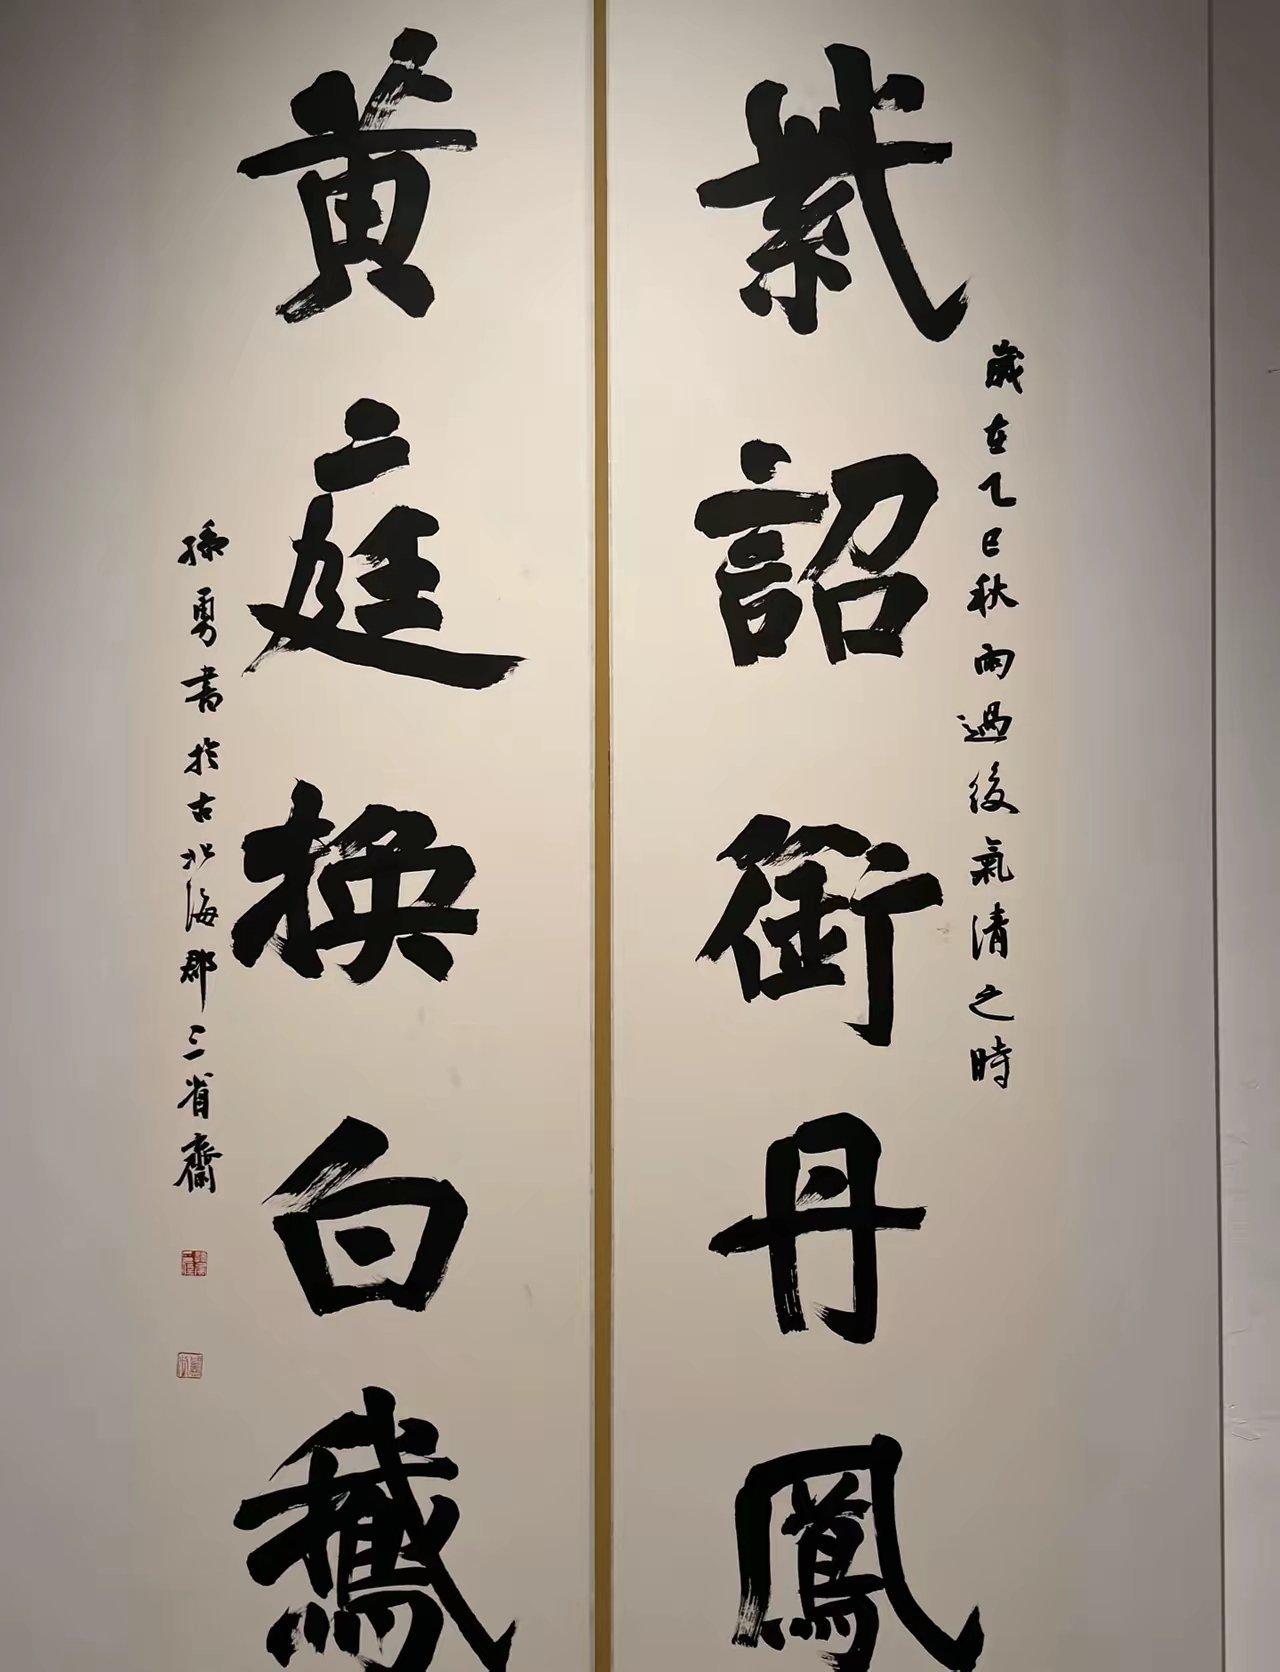 紫詔銜丹鳳
歲在乙巳秋雨過後氣清之時
黃庭換白鵞
孫勇書於古北海郡三省齋